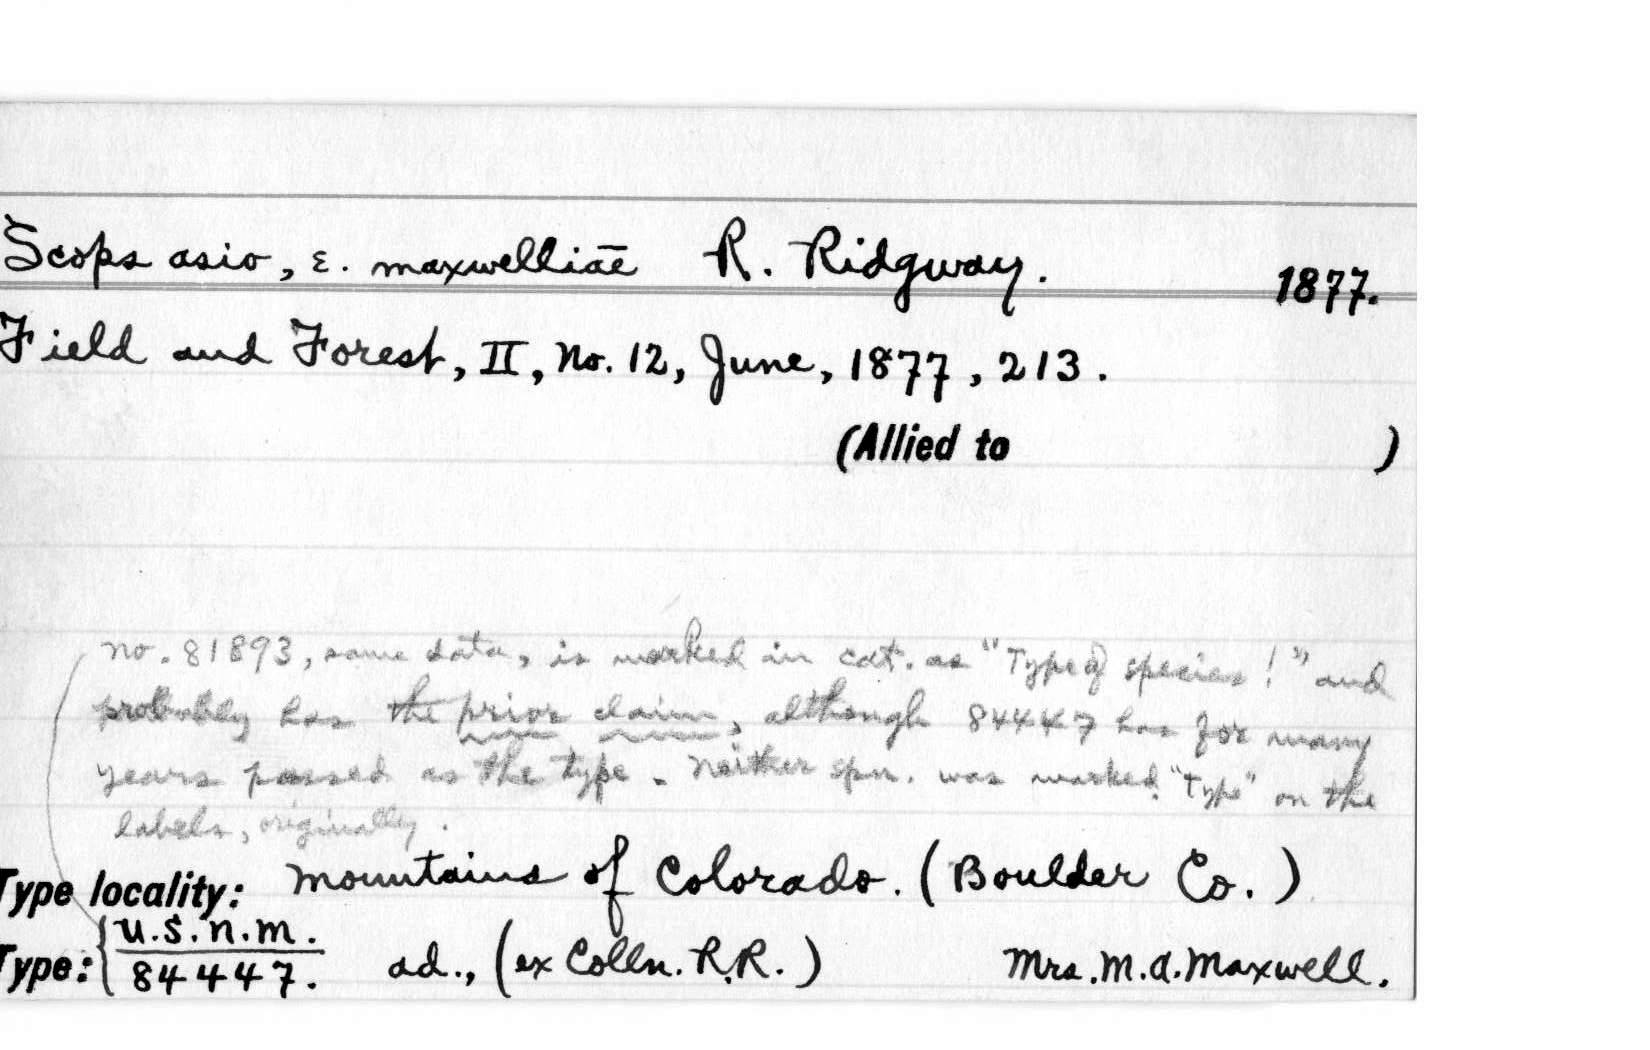 Scops asio, ε. maxwelliāē R. Ridgway. 1877.
Field and Forest, II, No. 12, June, 1877, 213.
(Allied to )
No. 81893, same data, is marked in cat. as "Type of species!" and
probably has the prior claim, although 84447 has for many
years passed as the type. Neither spn. was marked "Type" on the
labels, originally.
Type locality: Mountains of Colorado. (Boulder Co.)
U.S.N.M.
Type: 84447. ad., (ex Colln. R.R.) Mrs. M.A. Maxwell.